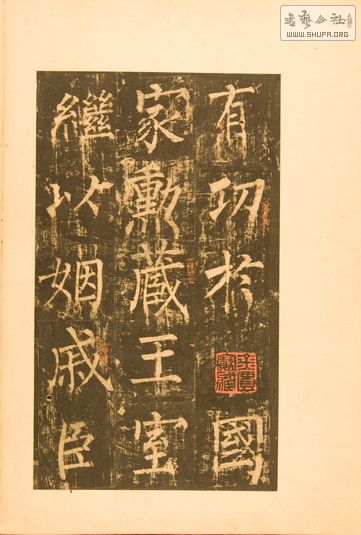 有功於國
家勳藏王室
繼以姻戚臣
書藝公社
WWW.SHUFA.ORG